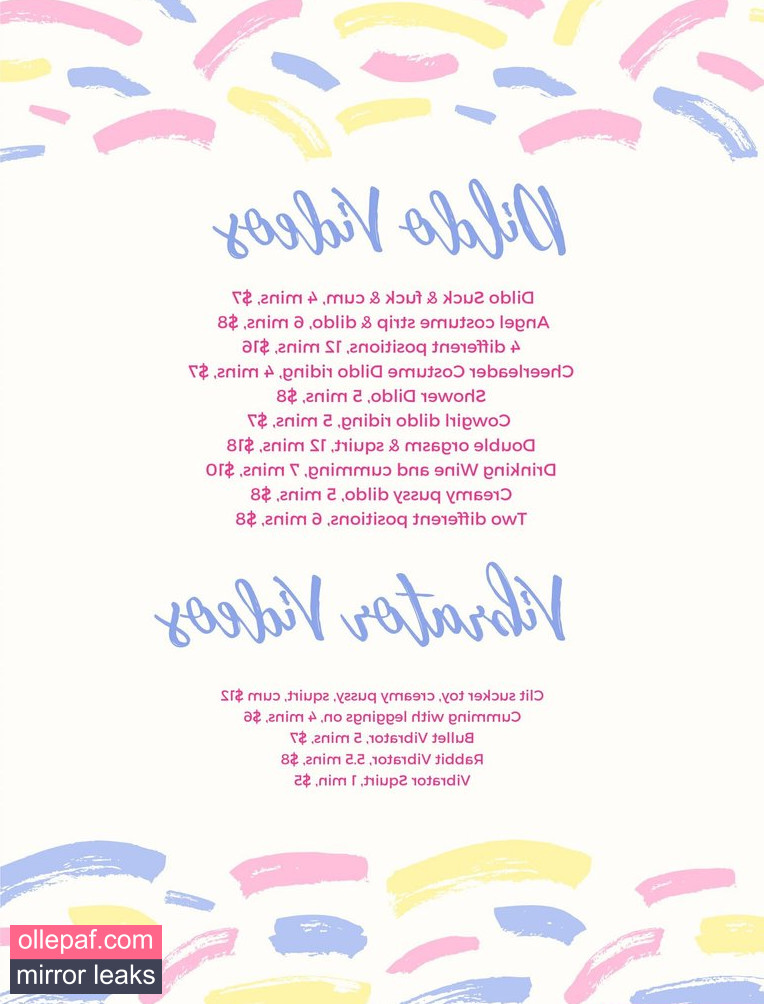 Dildo Videos
Dildo Suck & fuck & cum, 4 mins, $7
Angel costume strip & dildo, 6 mins, $8
4 different positions, 12 mins, $16
Cheerleader Costume Dildo riding, 4 mins, $7
Shower Dildo, 5 mins, $8
Cowgirl dildo riding, 5 mins, $7
Double orgasm & squirt, 12 mins, $18
Drinking Wine and cumming, 7 mins, $10
Creamy pussy dildo, 5 mins, $8
Two different positions, 6 mins, $8
Vibrator Videos
Clit sucker toy, creamy pussy, squirt, cum $12
Cumming with leggings on, 4 mins, $6
Bullet Vibrator, 5 mins, $7
Rabbit Vibrator, 5.5 mins, $8
Vibrator Squirt, 1 min, $5
ollepaf.com
mirror leaks